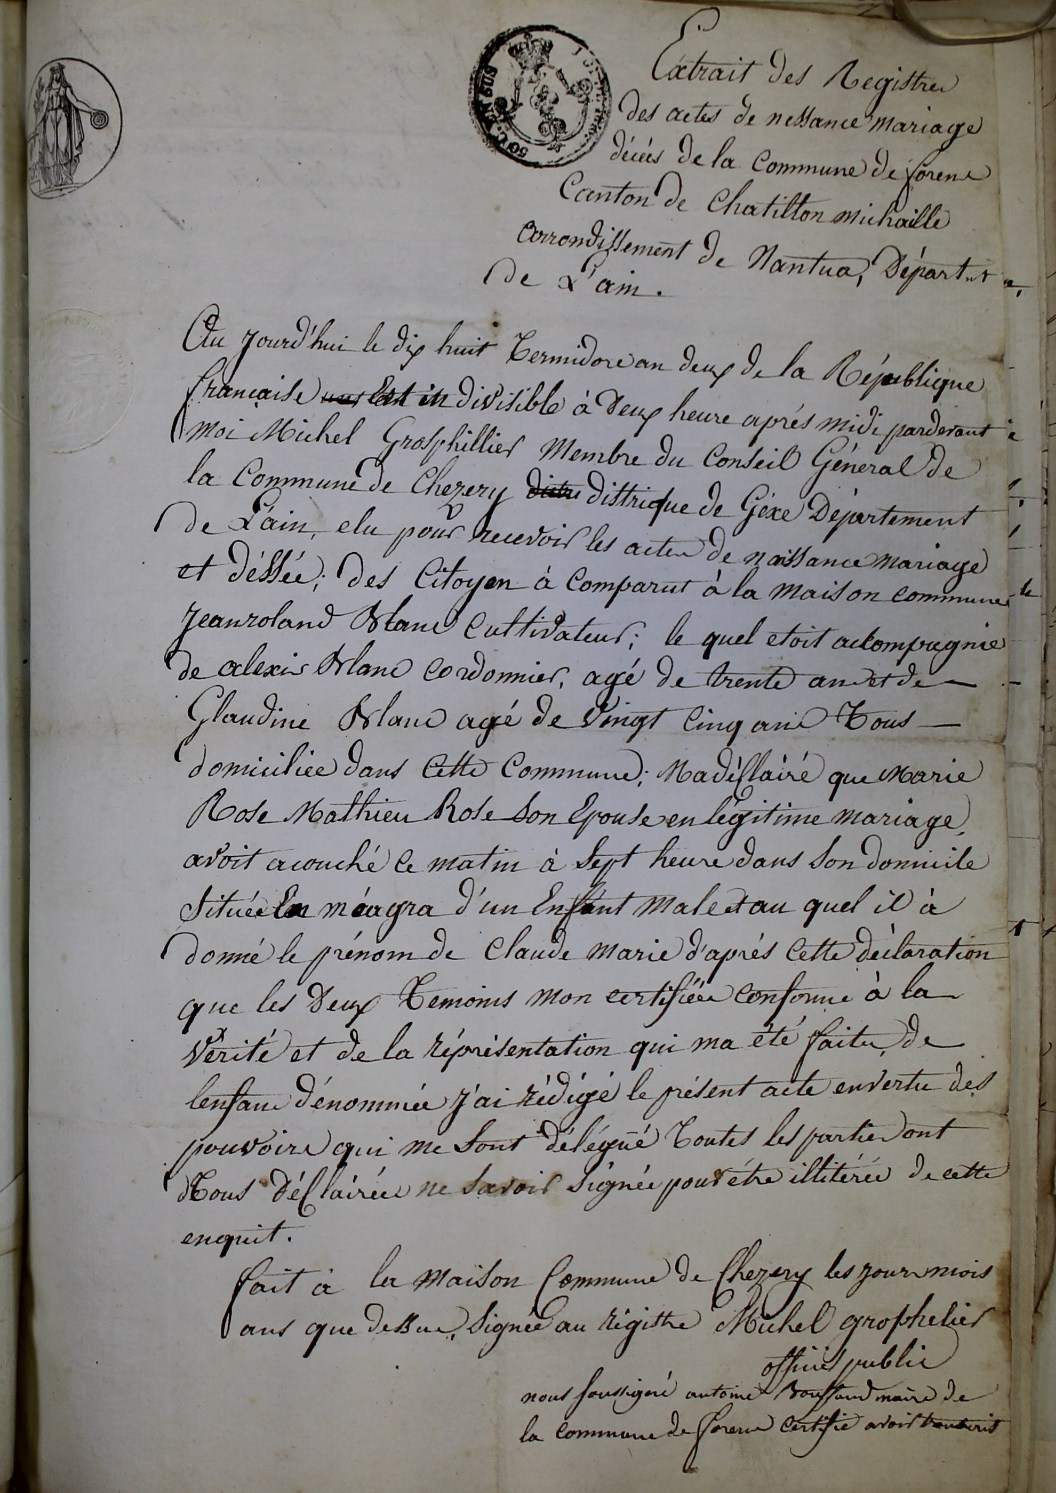 Extrait des Registres
des actes de nessance mariage
décés de la Commune de forens
Canton de Chatillon michaille
arrondissement de Nantua, Départ.nt
de L'ain.
Au Jourd'hui le dix huit Termidore an deux de la République
francaise divisible à Deux heure aprés midi pardevant
moi Michel Grosphillier Membre du Conseil Géneral de
la Commune de Chezery districque de Géxe Département
de L'ain, elu pour recevoir les actes de naissance mariage
et déssée; des Citoyen à Comparut à la maison commune
Jeanroland Blanc Cultivateur; le quel etoit acompagnié
de alexis Blanc cordonnier, agé de trente ans et de
Glaudine Blanc agé de Vingt Cinq ans Tous
domiciliée dans Cette Commune; Madéclairé que Marie
Rose Mathieu Rose Son Epouse en légitime mariage
avoit acouché ce matin à Sept heure dans Son domicile
Située En méagra d'un Enfant Male et au quel il à
donné le prénom de Claude Marie d'aprés Cette déclaration
que les Deux Temoins mon certifiée conforme à la
Vérité et de la réprésentation qui ma été faite, de
lenfant dénommée J'ai rédigé le présent acte en vertu des
pouvoirs qui me Sont délégué Toutes les parties ont
Tous déclairée ne Savoir Signée pour étre illitérée de cette
enquit.
fait à la Maison Commune de Chezery les jour mois
ans que dessus, Signée au régistre Michel grosphelier
officié public
nous soussigné antoine maire de
la commune de forens certifie avoir transcrit